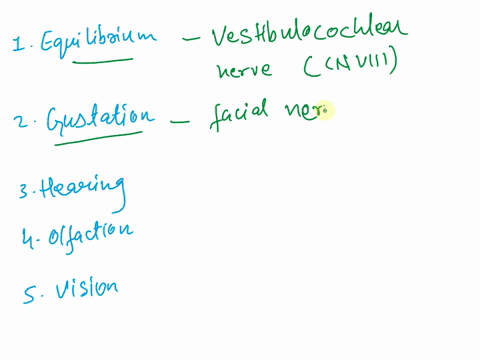 1. Equilibrium - Vestibulocochlear
nerve (CN VIII)
2. Gustation - facial ner
3. Hearing
4. Olfaction
5. Vision